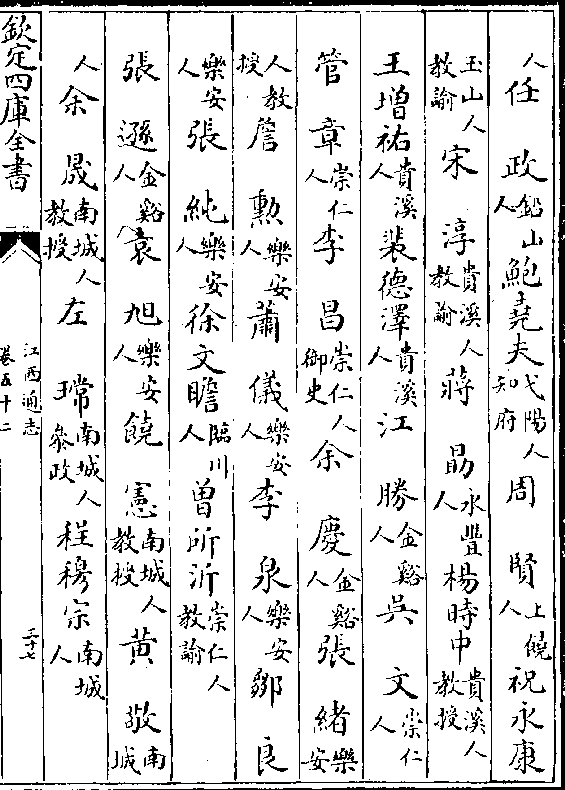 人任 政鉛山人鮑堯夫弋陽人知府周 賢上饒人祝永康
玉山人教諭宋 淳貴溪人教諭蔣 勗永豐人楊時中貴溪人教授
王增祐貴溪人裴德澤貴溪人江 勝金谿人吳 文崇仁人
管 章崇仁人李 昌崇仁人御史余 慶金谿人張 緒樂安
人教授詹 勲樂安人蕭 儀樂安人李 泉樂安人鄒 良
樂安人張 純樂安人徐文瞻臨川人曾所沂崇仁人教諭
張 遜金谿人袁 旭樂安人饒 憲南城人教授黃 敬南城
人余 晟南城人教授左 瑺南城人叅政程穆宗南城人
欽定四庫全書
江西通志
卷五十二
三十七